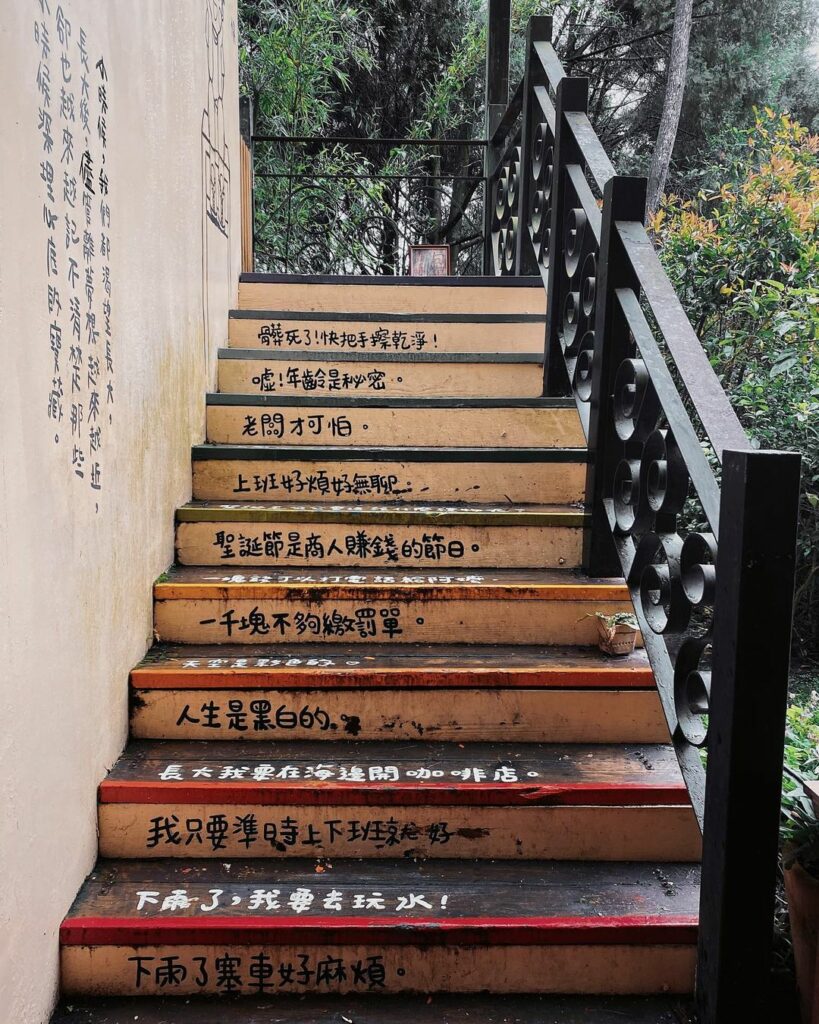 小時候，我們都渴望長大，
長大後，儘管離夢想越來越近，
卻也越來越記不清楚那些
時候深埋心底的寶藏。
髒死了！快把手擦乾淨！
噓！年齡是秘密。
老闆才可怕。
上班好煩好無聊。
聖誕節是商人賺錢的節日。
一塊錢可以打電話給阿嬤。
一千塊不夠繳罰單。
天空是彩色的。
人生是黑白的。
長大我要在海邊開咖啡店。
我只要準時上下班就好
下雨了，我要去玩水！
下雨了塞車好麻煩。